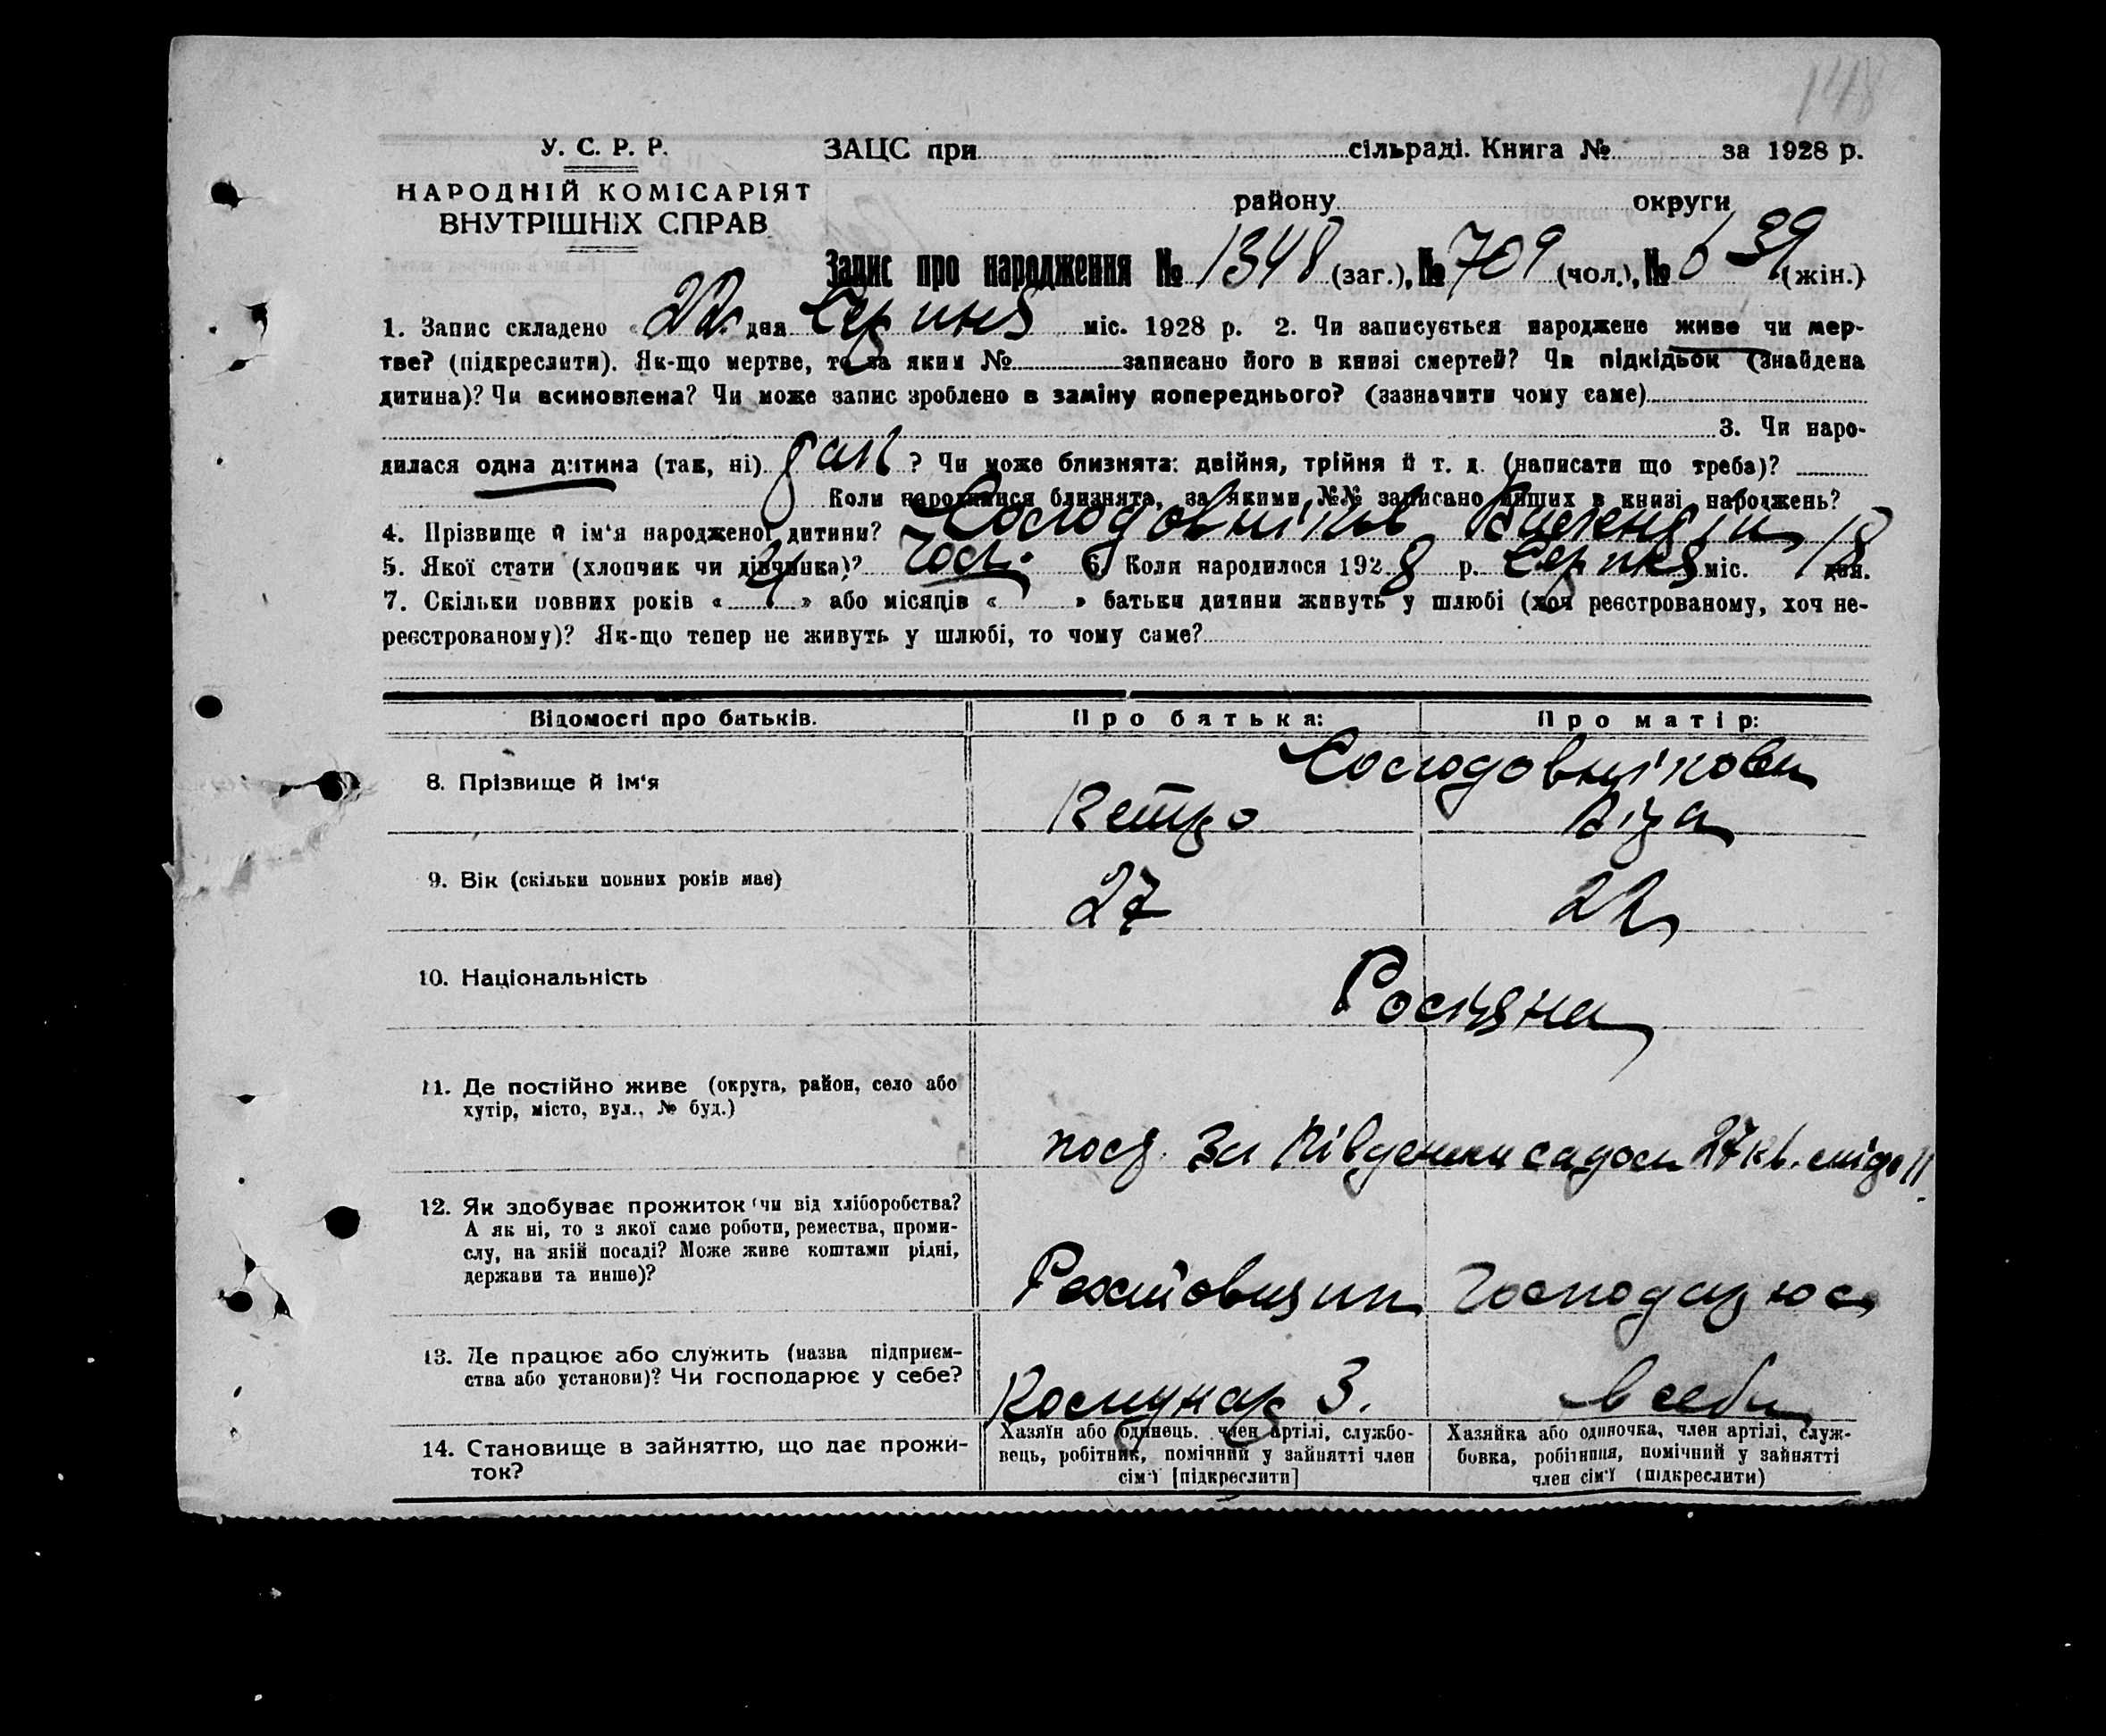 148
У. С. Р. Р.
НАРОДНІЙ КОМІСАРІЯТ
ВНУТРІШНІХ СПРАВ
ЗАЦС при сільраді. Книга № за 1928 р.
району округи
Запис про народження № 1348 (заг.), № 709 (чол.), № 639 (жін.)
1. Запис складено « 22 » дня Серпня міс. 1928 р. 2. Чи записується народжене живе чи мер-
тве? (підкреслити). Як-що мертве, то за яким № записано його в книзі смертей? Чи підкідьок (знайдена
дитина)? Чи всиновлена? Чи може запис зроблено в заміну попереднього? (зазначити чому саме)
3. Чи наро-
дилася одна дитина (так, ні) ? Чи може близнята: двійня, трійня й т. д. (написати що треба)?
Коли народилися близнята, за якими №№ записано инших в книзі народжень?
4. Прізвище й ім'я народженої дитини? Солодовніков Валентин
5. Якої стати (хлопчик чи дівчинка)? Чол. 6. Коли народилося 1928 р. Серпня міс. 18 дня.
7. Скільки повних років « » або місяців « » батьки дитини живуть у шлюбі (хоч реєстрованому, хоч не-
реєстрованому)? Як-що тепер не живуть у шлюбі, то чому саме?
Відомості про батьків. Про батька: Про матір:
Солодовнікови
8. Прізвище й ім'я Петро Ліза
9. Вік (скільки повних років має) 27 22
10. Національність Росіяне
11. Де постійно живе (округа, район, село або
хутір, місто, вул., № буд.)
посл. За Південни садом 27 кв. 11
12. Як здобуває прожиток (чи від хліборобства?
А як ні, то з якої саме роботи, ремества, проми-
слу, на якій посаді? Може живе коштами рідні,
держави та инше)?
Господарює
13. Де працює або служить (назва підприєм-
ства або установи)? Чи господарює у себе?
Комунар З. в себе
14. Становище в зайняттю, що дає прожи-
ток?
Хазяїн або одинець, член артілі, службо-
вець, робітник, помічний у зайнятті член
сім'ї [підкреслити]
Хазяйка або одиночка, член артілі, служ-
бовка, робітниця, помічний у зайнятті
член сім'ї (підкреслити)